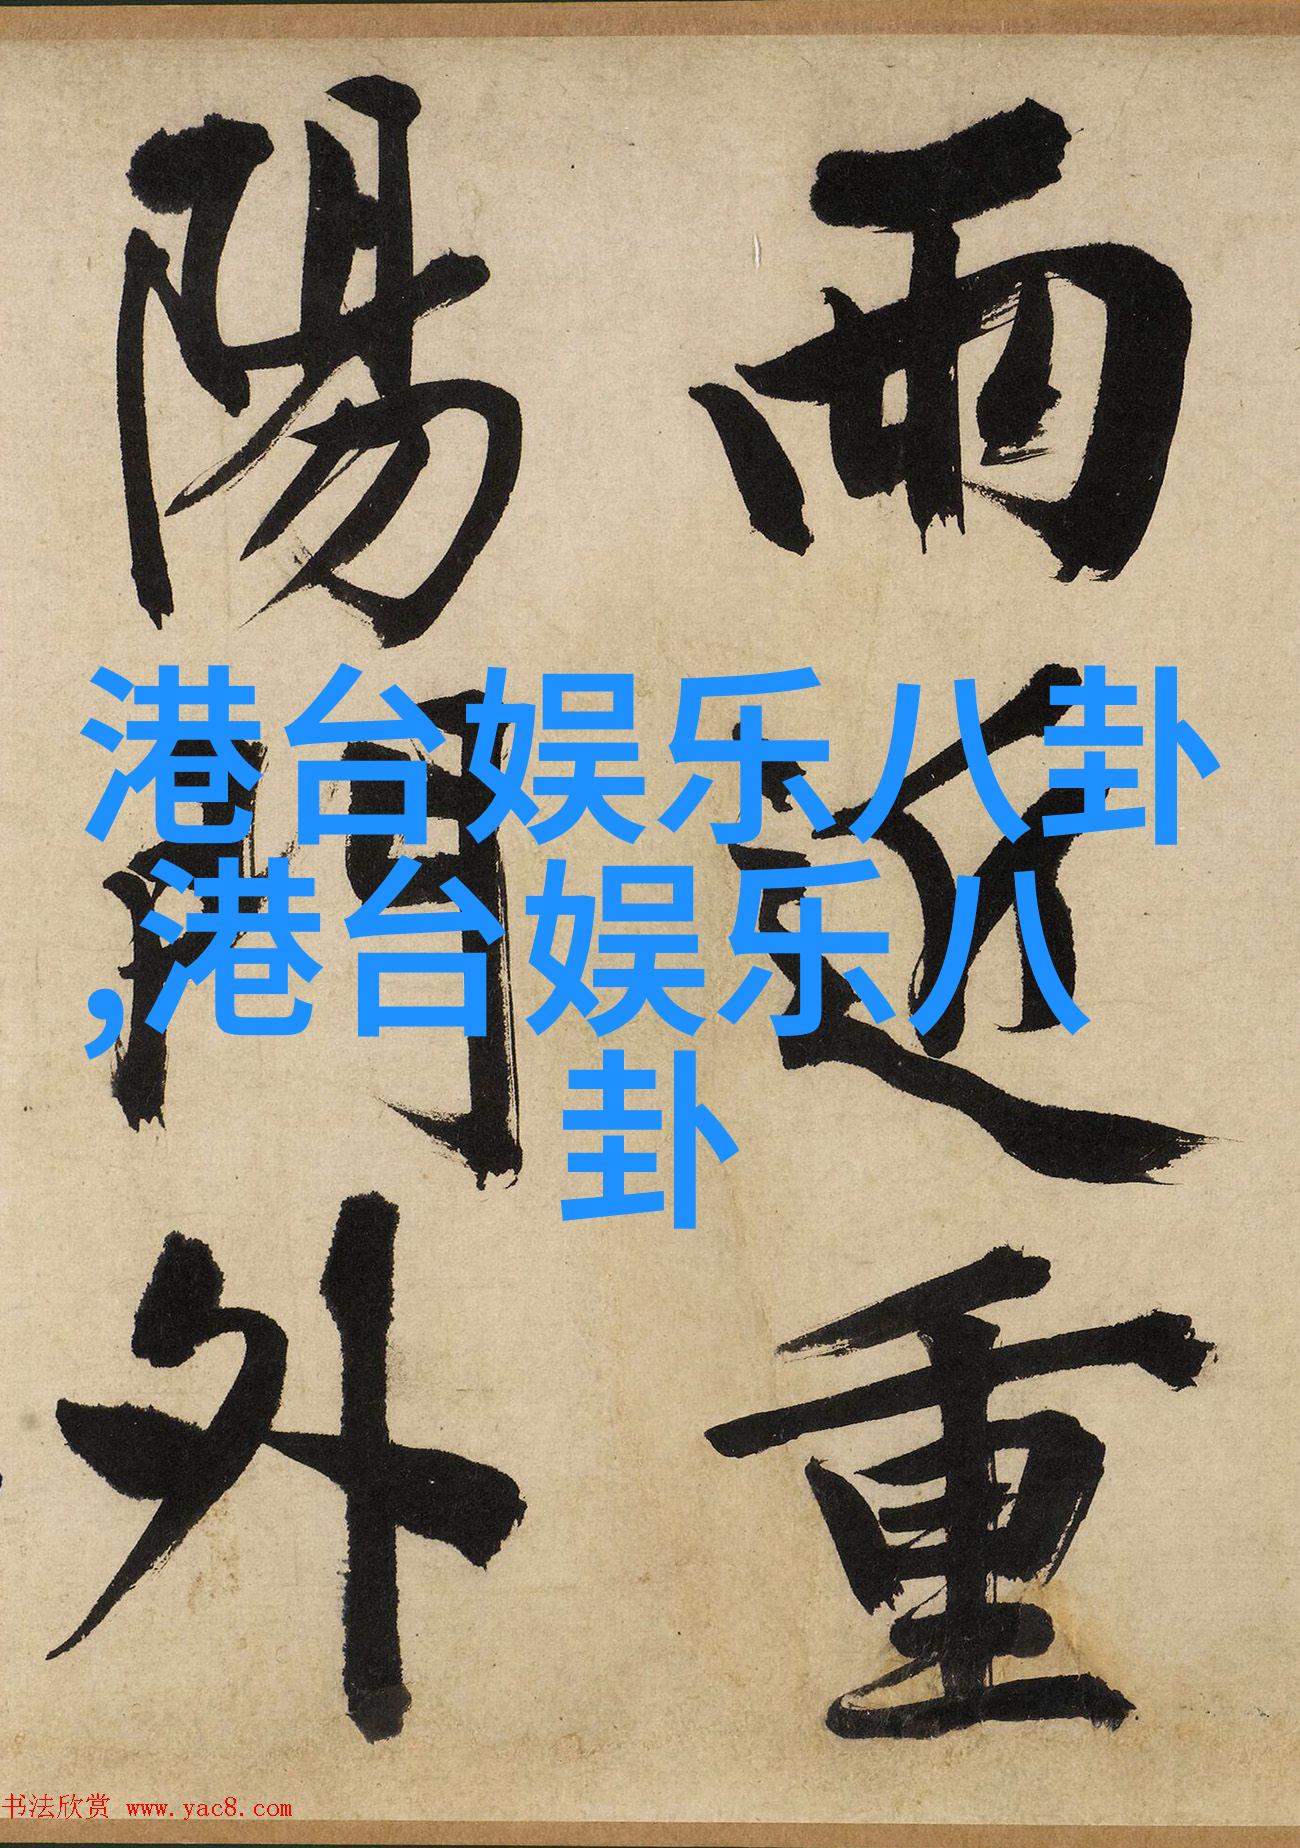 雨近重
陽門外
港台娱乐八卦
,港台娱乐八
卦
书法欣赏 www.yac8.com